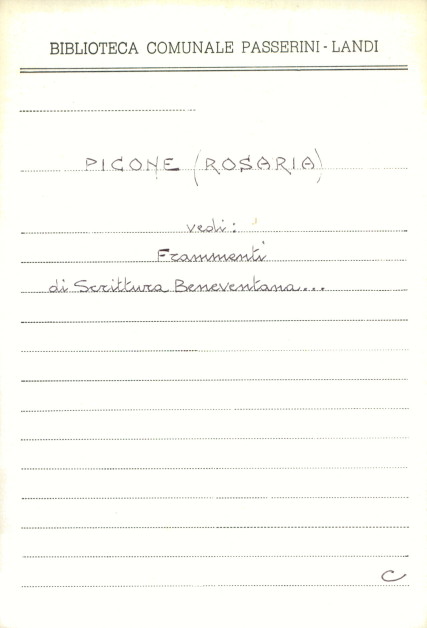 BIBLIOTECA COMUNALE PASSERINI - LANDI
PICONE (ROSARIA)
vedi:
Frammenti
di Scrittura Beneventana...
C